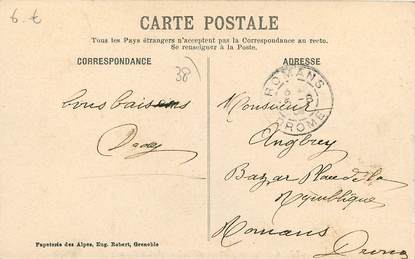 6 €
CARTE POSTALE
Tous les Pays étrangers n'acceptent pas la Correspondance au recto.
Se renseigner à la Poste.
CORRESPONDANCE
ADRESSE
38
ROMANS
DROME
bons baisers
Monsieur
Bazar Place de la
République
Romans
Drome
Papeterie des Alpes, Eug. Robert, Grenoble